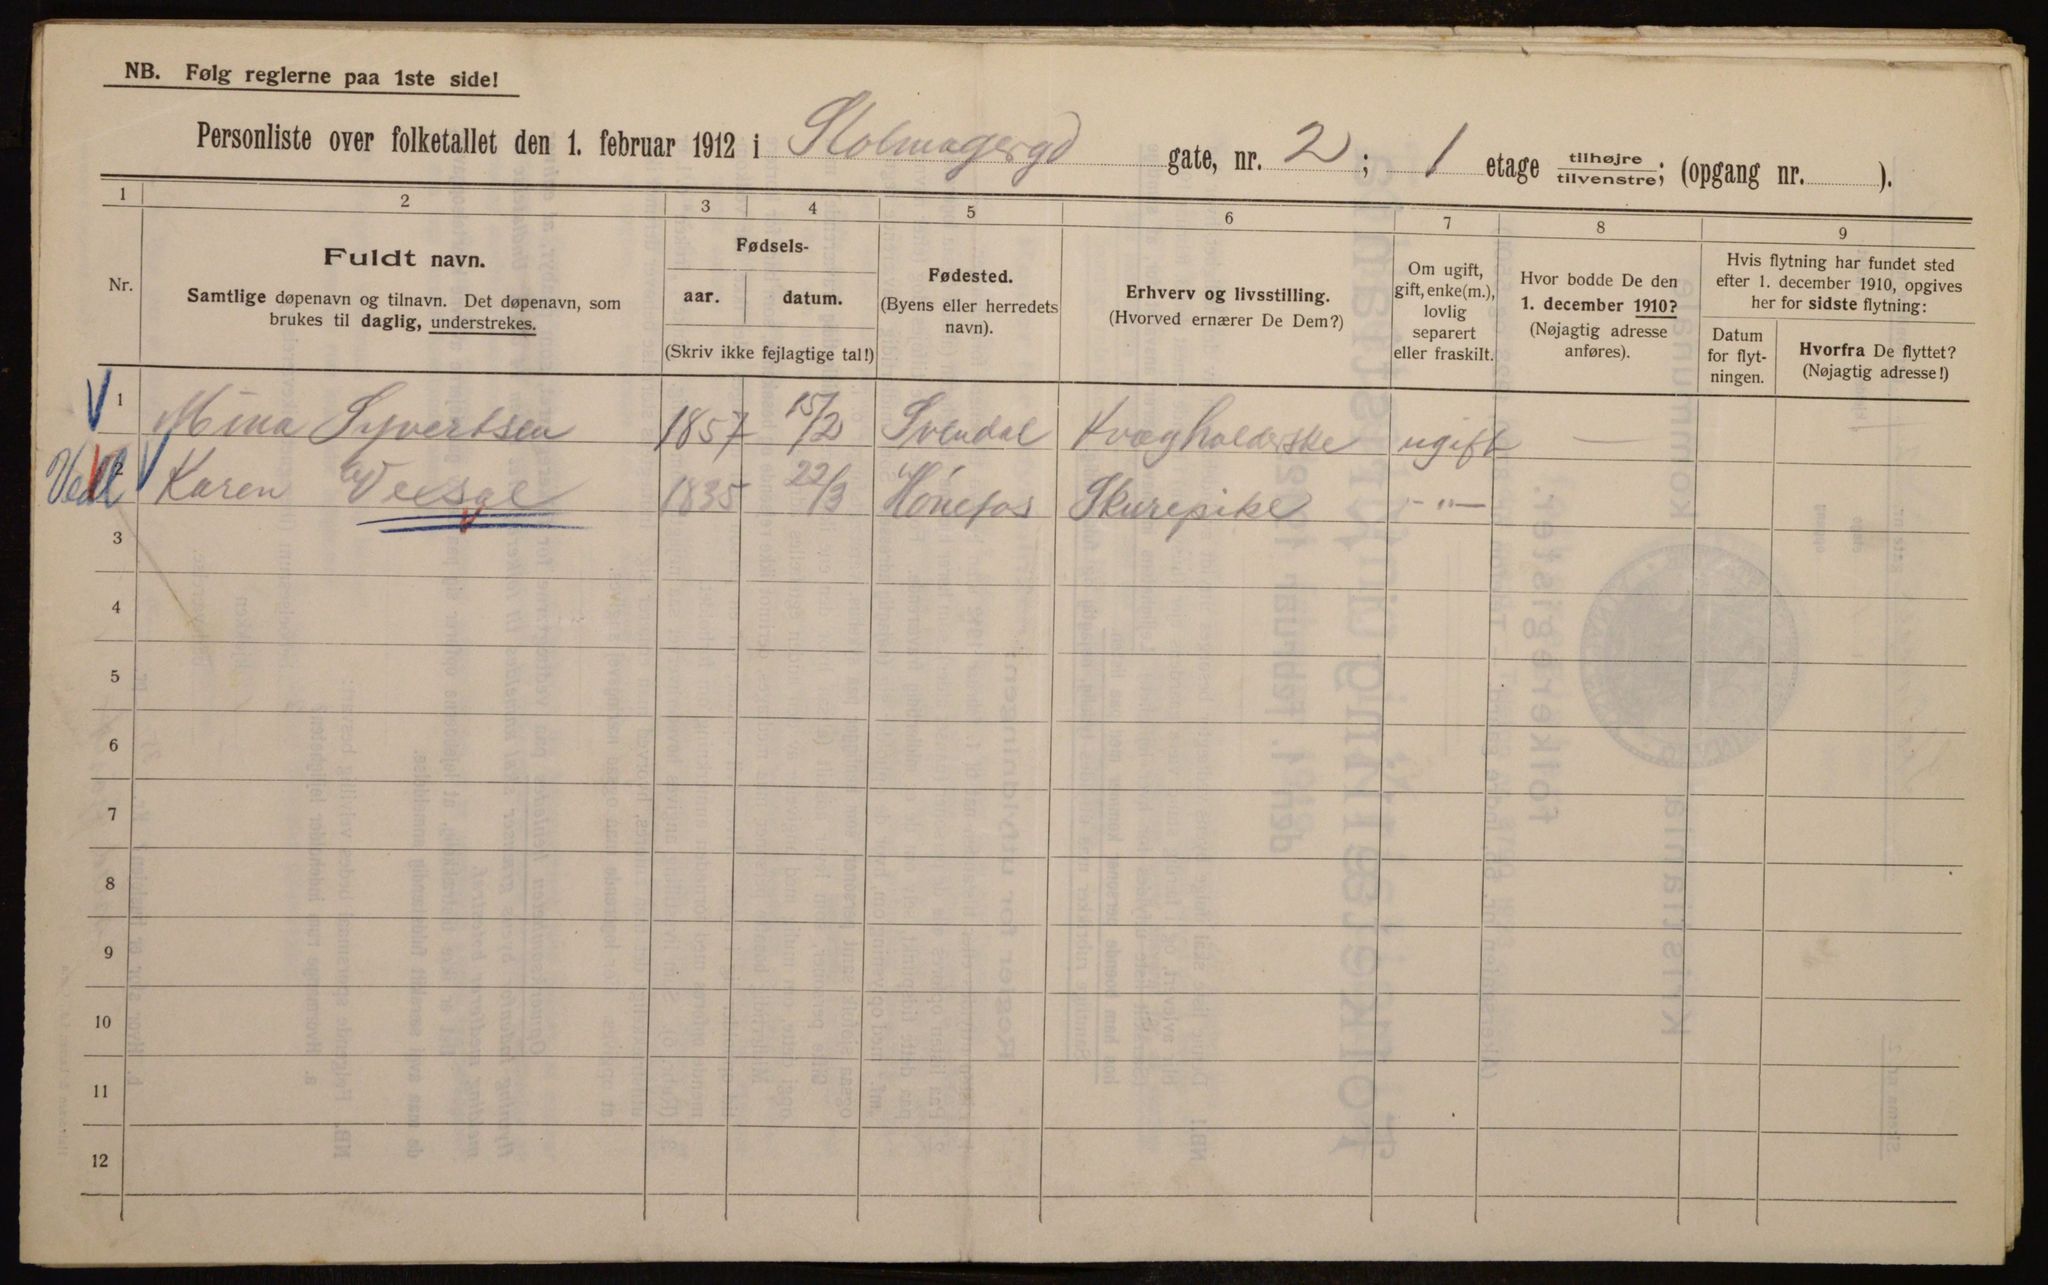 NB. Følg reglerne paa 1ste side!
Personliste over folketallet den 1. februar 1912 i Stolmagergd gate, nr. 2; 1 etage tilhøjre/tilvenstre; (opgang nr. ).
1 2 3 4 5 6 7 8 9
Nr.
Fuldt navn.
Samtlige døpenavn og tilnavn. Det døpenavn, som
brukes til daglig, understrekes.
Fødsels-
aar. datum.
(Skriv ikke fejlagtige tal!)
Fødested.
(Byens eller herredets
navn).
Erhverv og livsstilling.
(Hvorved ernærer De Dem?)
Om ugift,
gift, enke(m.),
lovlig
separert
eller fraskilt.
Hvor bodde De den
1. december 1910?
(Nøjagtig adresse
anføres).
Hvis flytning har fundet sted
efter 1. december 1910, opgives
her for sidste flytning:
Datum
for flyt-
ningen.
Hvorfra De flyttet?
(Nøjagtig adresse!)
1 Mina Syvertsen 1857 15/2 Svendal Kvægholderske ugift —
Vedl 2 Karen 1835 22/3 Hønefos Skurepike -"-
3
4
5
6
7
8
9
10
11
12